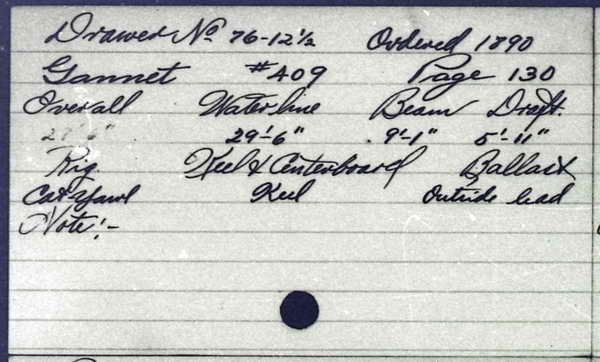 Drawer No 76-12½ Ordered 1890
Gannet #409 Page 130
Overall Waterline Beam Draft.
29'-6" 9'-1" 5'-11"
Rig. Keel & Centerboard Ballast
Cat-Yawl Keel Outside lead
Note:-